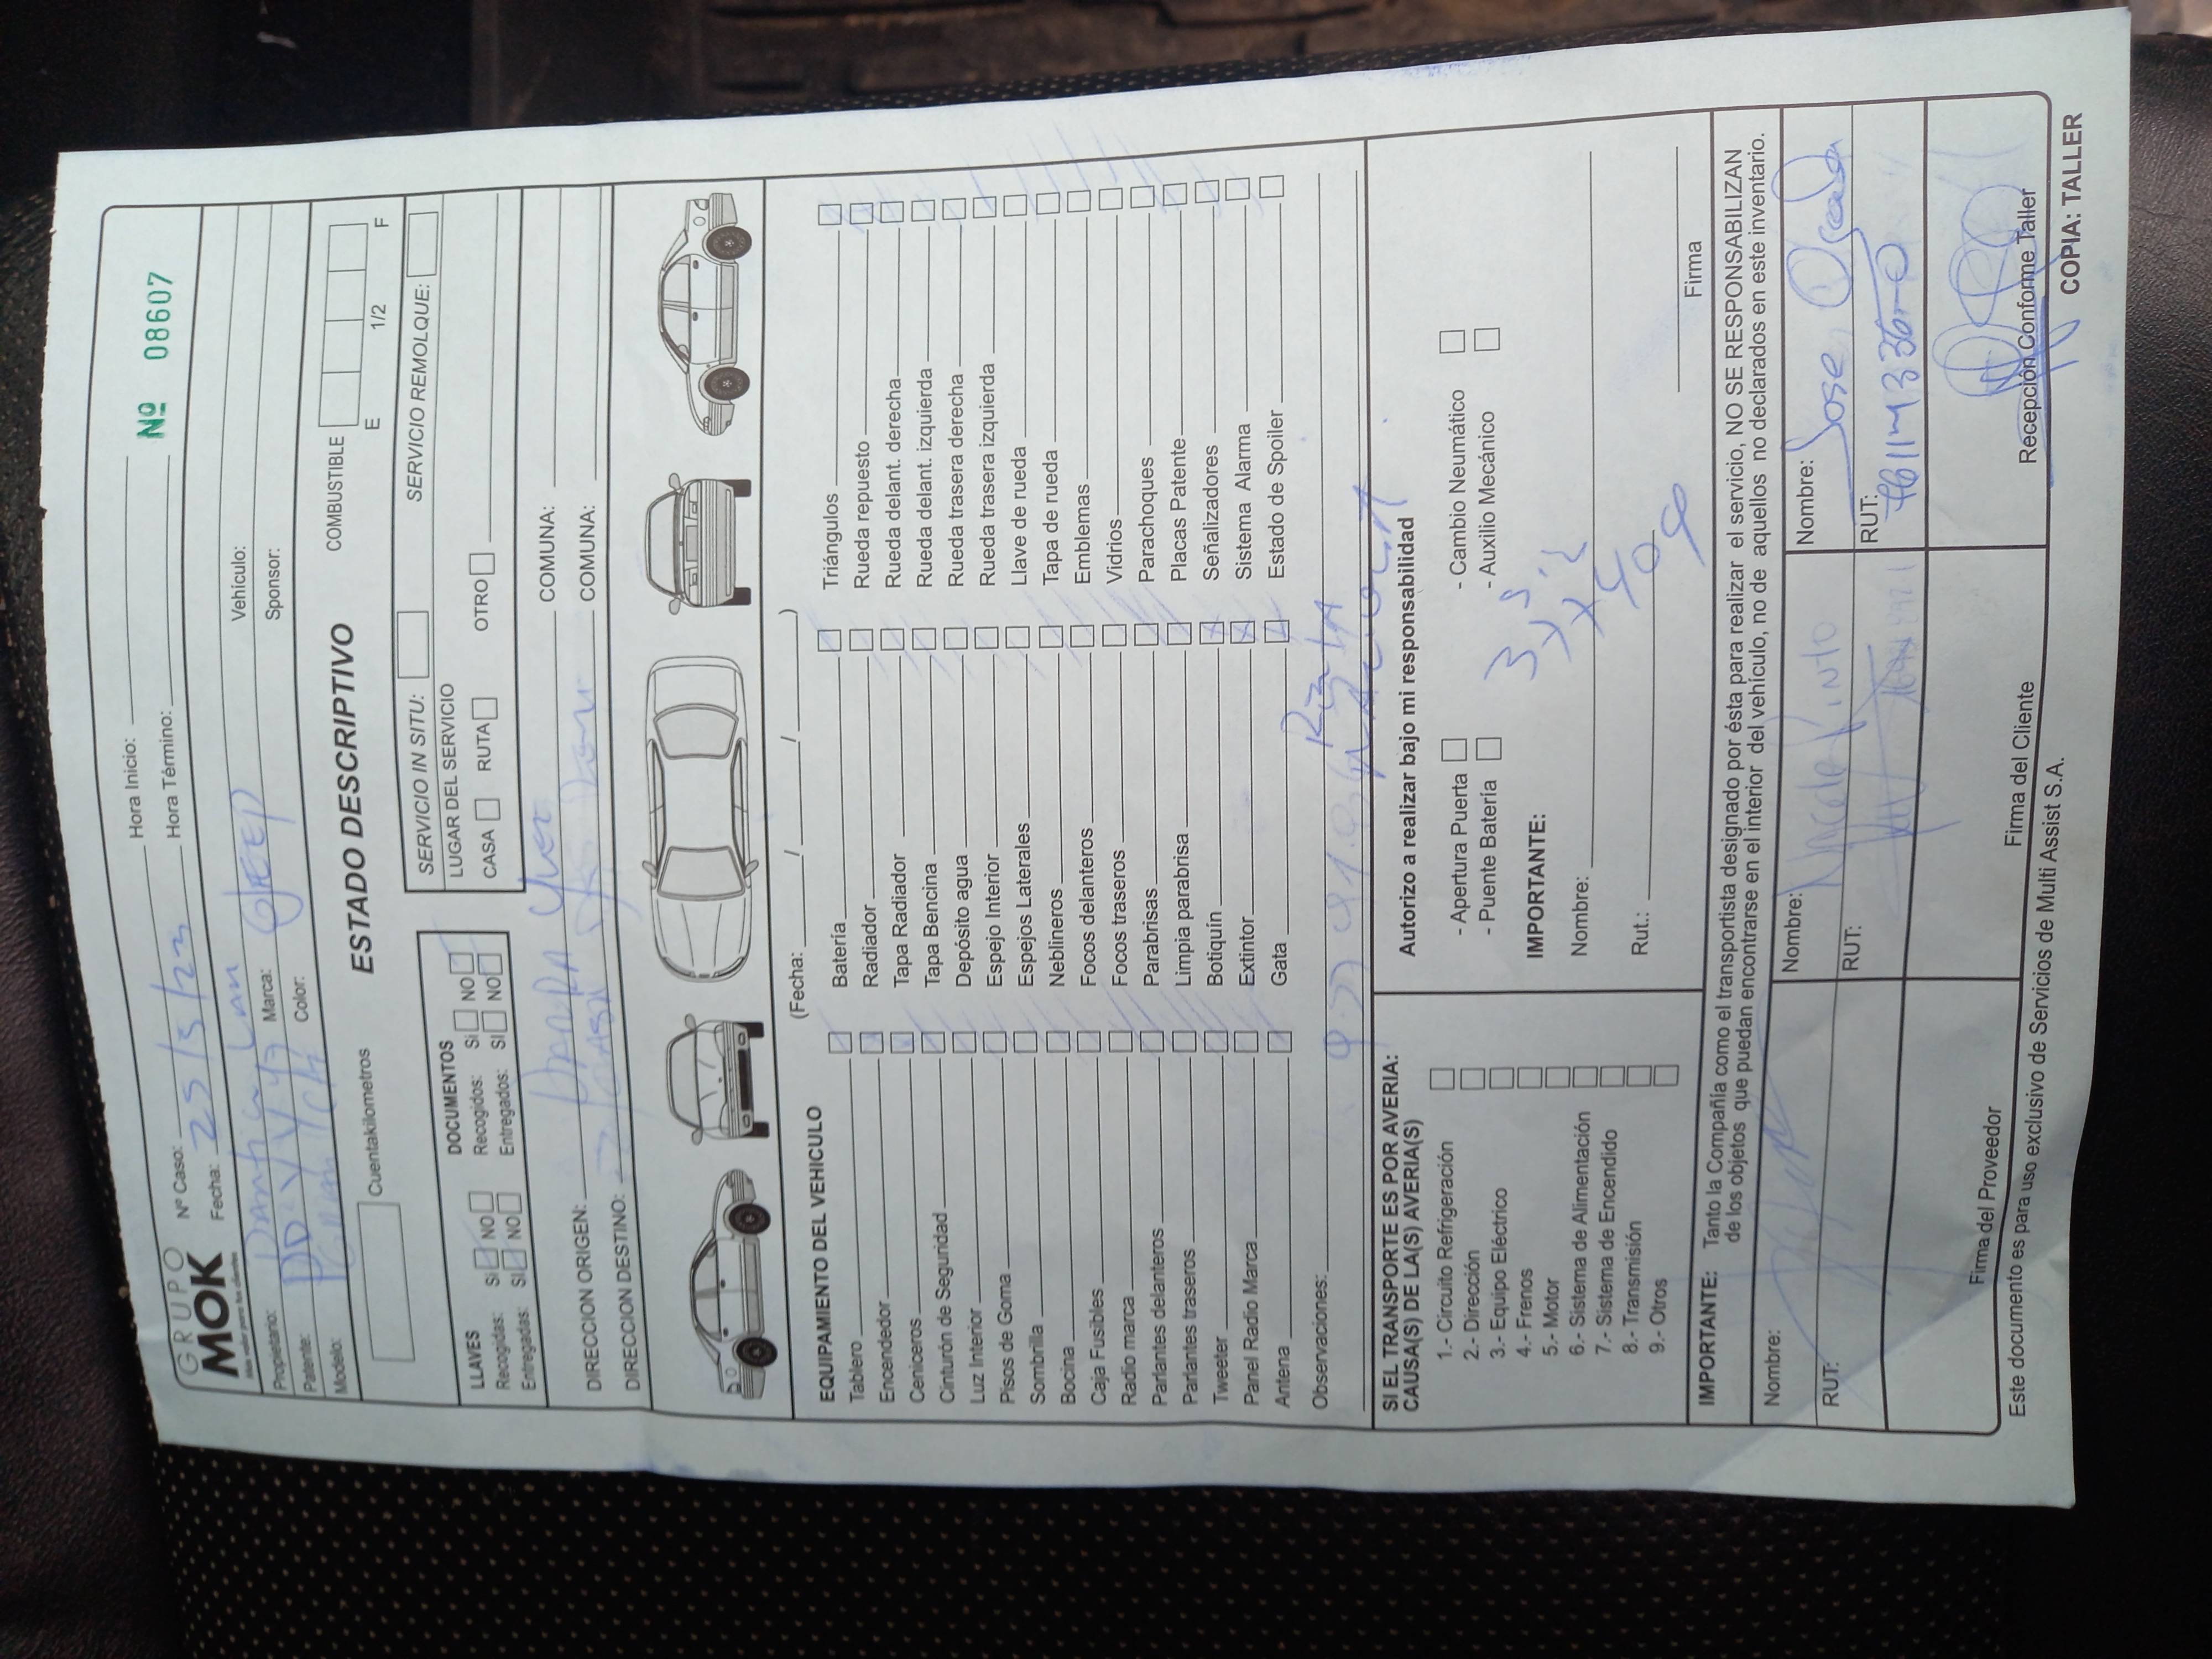 GRUPO
MOK
Nº Caso: Hora Inicio:
Fecha: Hora Término: Nº 08607
Propietario: Marca: JEEP Vehículo:
Patente: Color: Sponsor:
Modelo:
Cuentakilometros ESTADO DESCRIPTIVO COMBUSTIBLE
E 1/2 F
LLAVES DOCUMENTOS
Recogidas: SI NO Recogidos: SI NO
Entregadas: SI NO Entregados: SI NO
SERVICIO IN SITU: SERVICIO REMOLQUE:
LUGAR DEL SERVICIO
CASA RUTA OTRO
DIRECCION ORIGEN: COMUNA:
DIRECCION DESTINO: COMUNA:
(Fecha: / / )
EQUIPAMIENTO DEL VEHICULO
Tablero Batería Triángulos
Encendedor Radiador Rueda repuesto
Ceniceros Tapa Radiador Rueda delant. derecha
Cinturón de Seguridad Tapa Bencina Rueda delant. izquierda
Luz Interior Depósito agua Rueda trasera derecha
Pisos de Goma Espejo Interior Rueda trasera izquierda
Sombrilla Espejos Laterales Llave de rueda
Bocina Neblineros Tapa de rueda
Caja Fusibles Focos delanteros Emblemas
Radio marca Focos traseros Vidrios
Parlantes delanteros Parabrisas Parachoques
Parlantes traseros Limpia parabrisa Placas Patente
Tweeter Botiquín Señalizadores
Panel Radio Marca Extintor Sistema Alarma
Antena Gata Estado de Spoiler
Observaciones:
SI EL TRANSPORTE ES POR AVERIA:
CAUSA(S) DE LA(S) AVERIA(S)
1.- Circuito Refrigeración
2.- Dirección
3.- Equipo Eléctrico
4.- Frenos
5.- Motor
6.- Sistema de Alimentación
7.- Sistema de Encendido
8.- Transmisión
9.- Otros
Autorizo a realizar bajo mi responsabilidad
- Apertura Puerta - Cambio Neumático
- Puente Batería - Auxilio Mecánico
IMPORTANTE:
Nombre:
Rut.:
Firma
IMPORTANTE: Tanto la Compañía como el transportista designado por ésta para realizar el servicio, NO SE RESPONSABILIZAN
de los objetos que puedan encontrarse en el interior del vehículo, no de aquellos no declarados en este inventario.
Nombre: Nombre: Pinto Nombre: Jose
RUT: RUT: RUT:
Firma del Proveedor Firma del Cliente Recepción Conforme Taller
Este documento es para uso exclusivo de Servicios de Multi Assist S.A. COPIA: TALLER